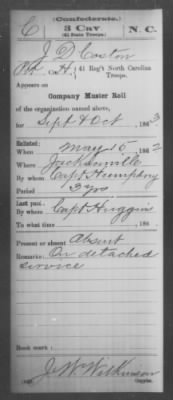 (Confederate.)
C 3 Cav. N. C.
(41 State Troops.)
J D Coston
Pvt, Co. H, 41 Reg't North Carolina
Troops.
Appears on
Company Muster Roll
of the organization named above,
for Sept & Oct, 1863
Enlisted:
When May 15, 1862
Where Jacksonville
By whom Capt Humphrey
Period 3 yrs
Last paid:
By whom Capt Huggins
To what time , 186
Present or absent Absent
Remarks: On detached
service
Book mark:
J. W. Wilkinson
Copyist.